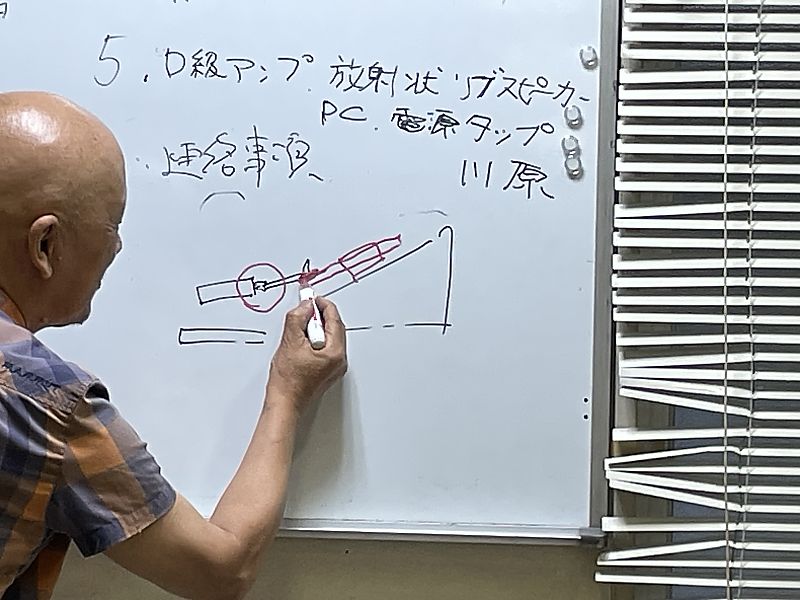 5. D級アンプ. 放射状リブスピーカー
PC. 電源タップ
川原
・連絡事項、